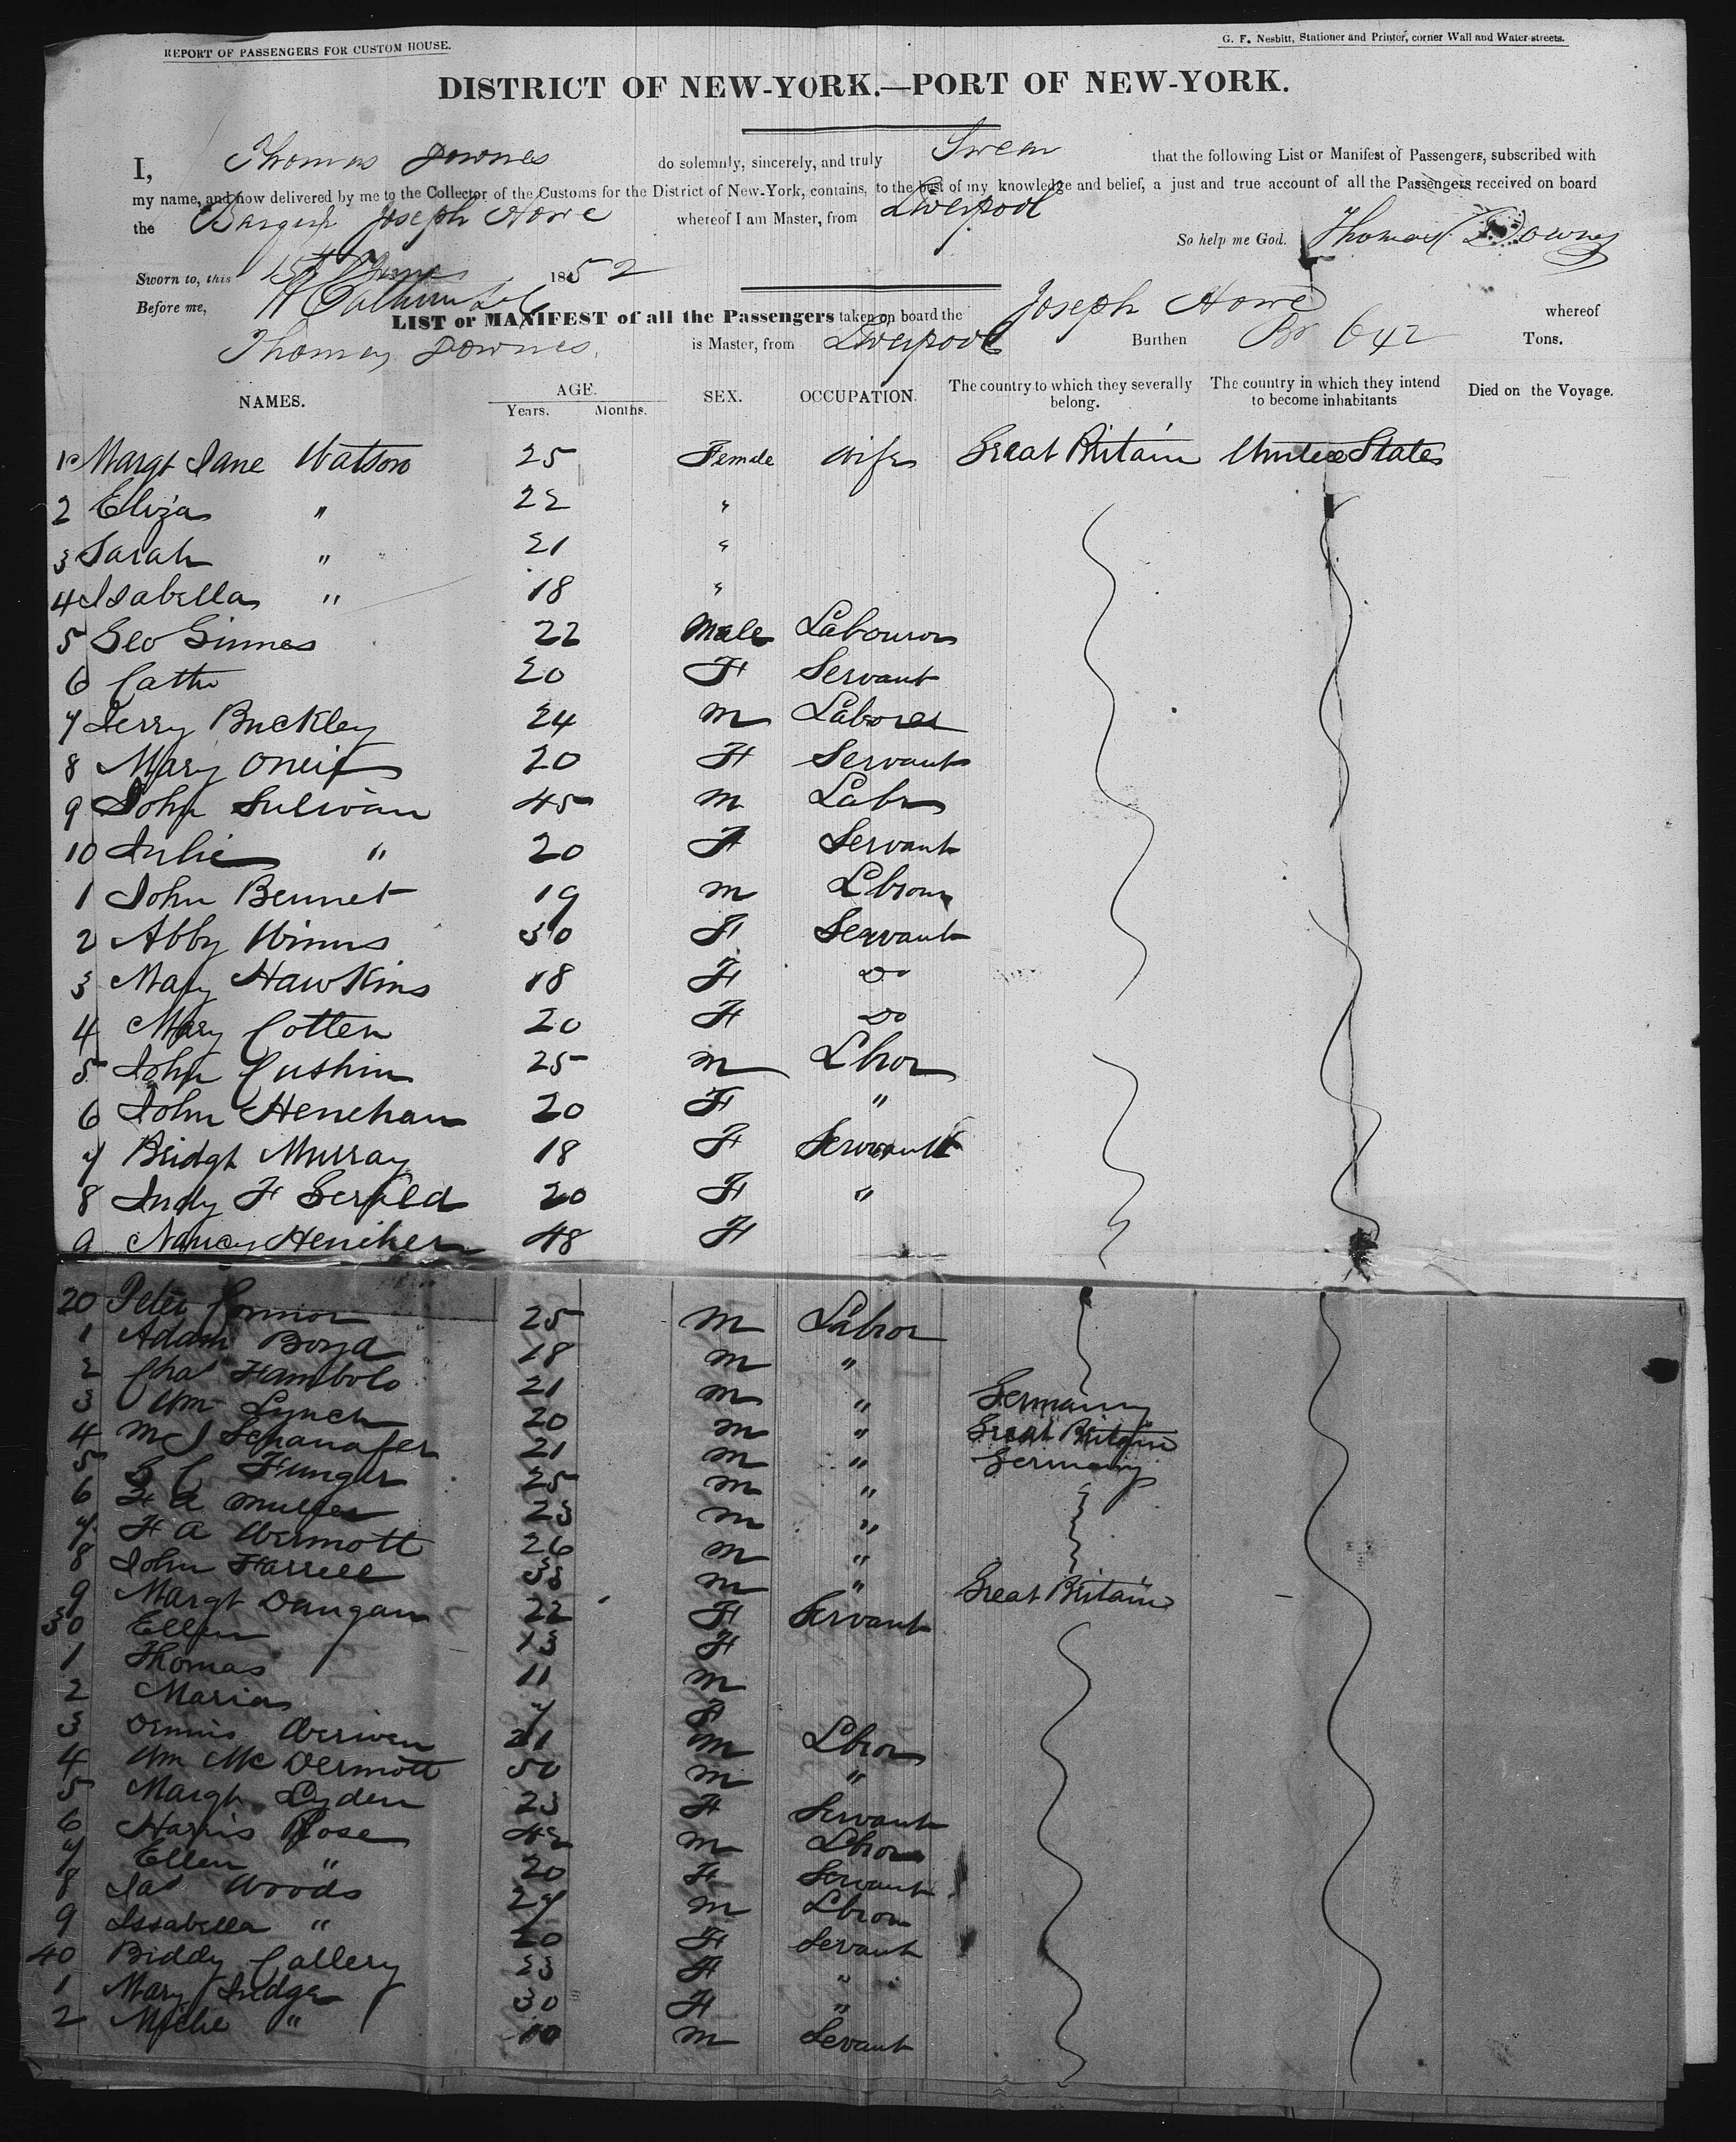 REPORT OF PASSENGERS FOR CUSTOM HOUSE.
G. F. Nesbitt, Stationer and Printer, corner Wall and Water-streets.
DISTRICT OF NEW-YORK.—PORT OF NEW-YORK.
I, Thomas Downes do solemnly, sincerely, and truly Swear that the following List or Manifest of Passengers, subscribed with
my name, and now delivered by me to the Collector of the Customs for the District of New-York, contains, to the best of my knowledge and belief, a just and true account of all the Passengers received on board
the Barque Joseph Howe whereof I am Master, from Liverpool
So help me God. Thomas Downes
Sworn to, this 15 1852
Before me,
LIST or MANIFEST of all the Passengers taken on board the Joseph Howe whereof
Thomas Downes is Master, from Liverpool Burthen Br 642 Tons.
NAMES. AGE. SEX. OCCUPATION. The country to which they severally belong. The country in which they intend to become inhabitants Died on the Voyage.
Years. Months.
1 Margt Jane Watson 25 Female Wife Great Britain United States
2 Eliza " 22 "
3 Sarah " 21 "
4 Isabella " 18 "
5 Geo Ginnes 22 Male Labourer
6 Cathe 20 F Servant
7 Jerry Buckley 24 m Laborer
8 Mary Oneil 20 F Servant
9 John Sulivan 45 m Labr
10 Julie " 20 F Servant
1 John Bennet 19 m Lbrour
2 Abby Winns 30 F Servant
3 Mary Hawkins 18 F Do
4 Mary Cotten 20 F Do
5 John Cushin 25 m Lbror
6 John Henehan 20 F "
7 Bridgt Murray 18 F Servant
8 Judy F Gerald 20 F "
9 Nancy Henihen 48 F
20 Peter Connor 25 m Labror
1 Adam Boyd 18 m "
2 Chas Hambolo 21 m " Germany
3 Wm Lynch 20 m " Great Britain
4 M J 21 m " Germany
5 G C Hunger 25 m "
6 F A Muller 23 m "
7 F A Wermott 26 m "
8 John Farrell 33 m "
9 Margt Dangan 22 F Servant Great Britain
30 Ellen 13 F
1 Thomas 11 m
2 Maria 7 F
3 Dennis 21 m Lbror
4 Wm McDermott 50 m "
5 Margt Lyden 23 F Servant
6 Harris Rose 42 m Lbror
7 Ellen " 20 F Servant
8 Jas Woods 27 m Lbror
9 Issabella " 20 F Servant
40 Biddy Callery 23 F "
1 Mary Judge 30 F "
2 Miche " 10 m Sevant